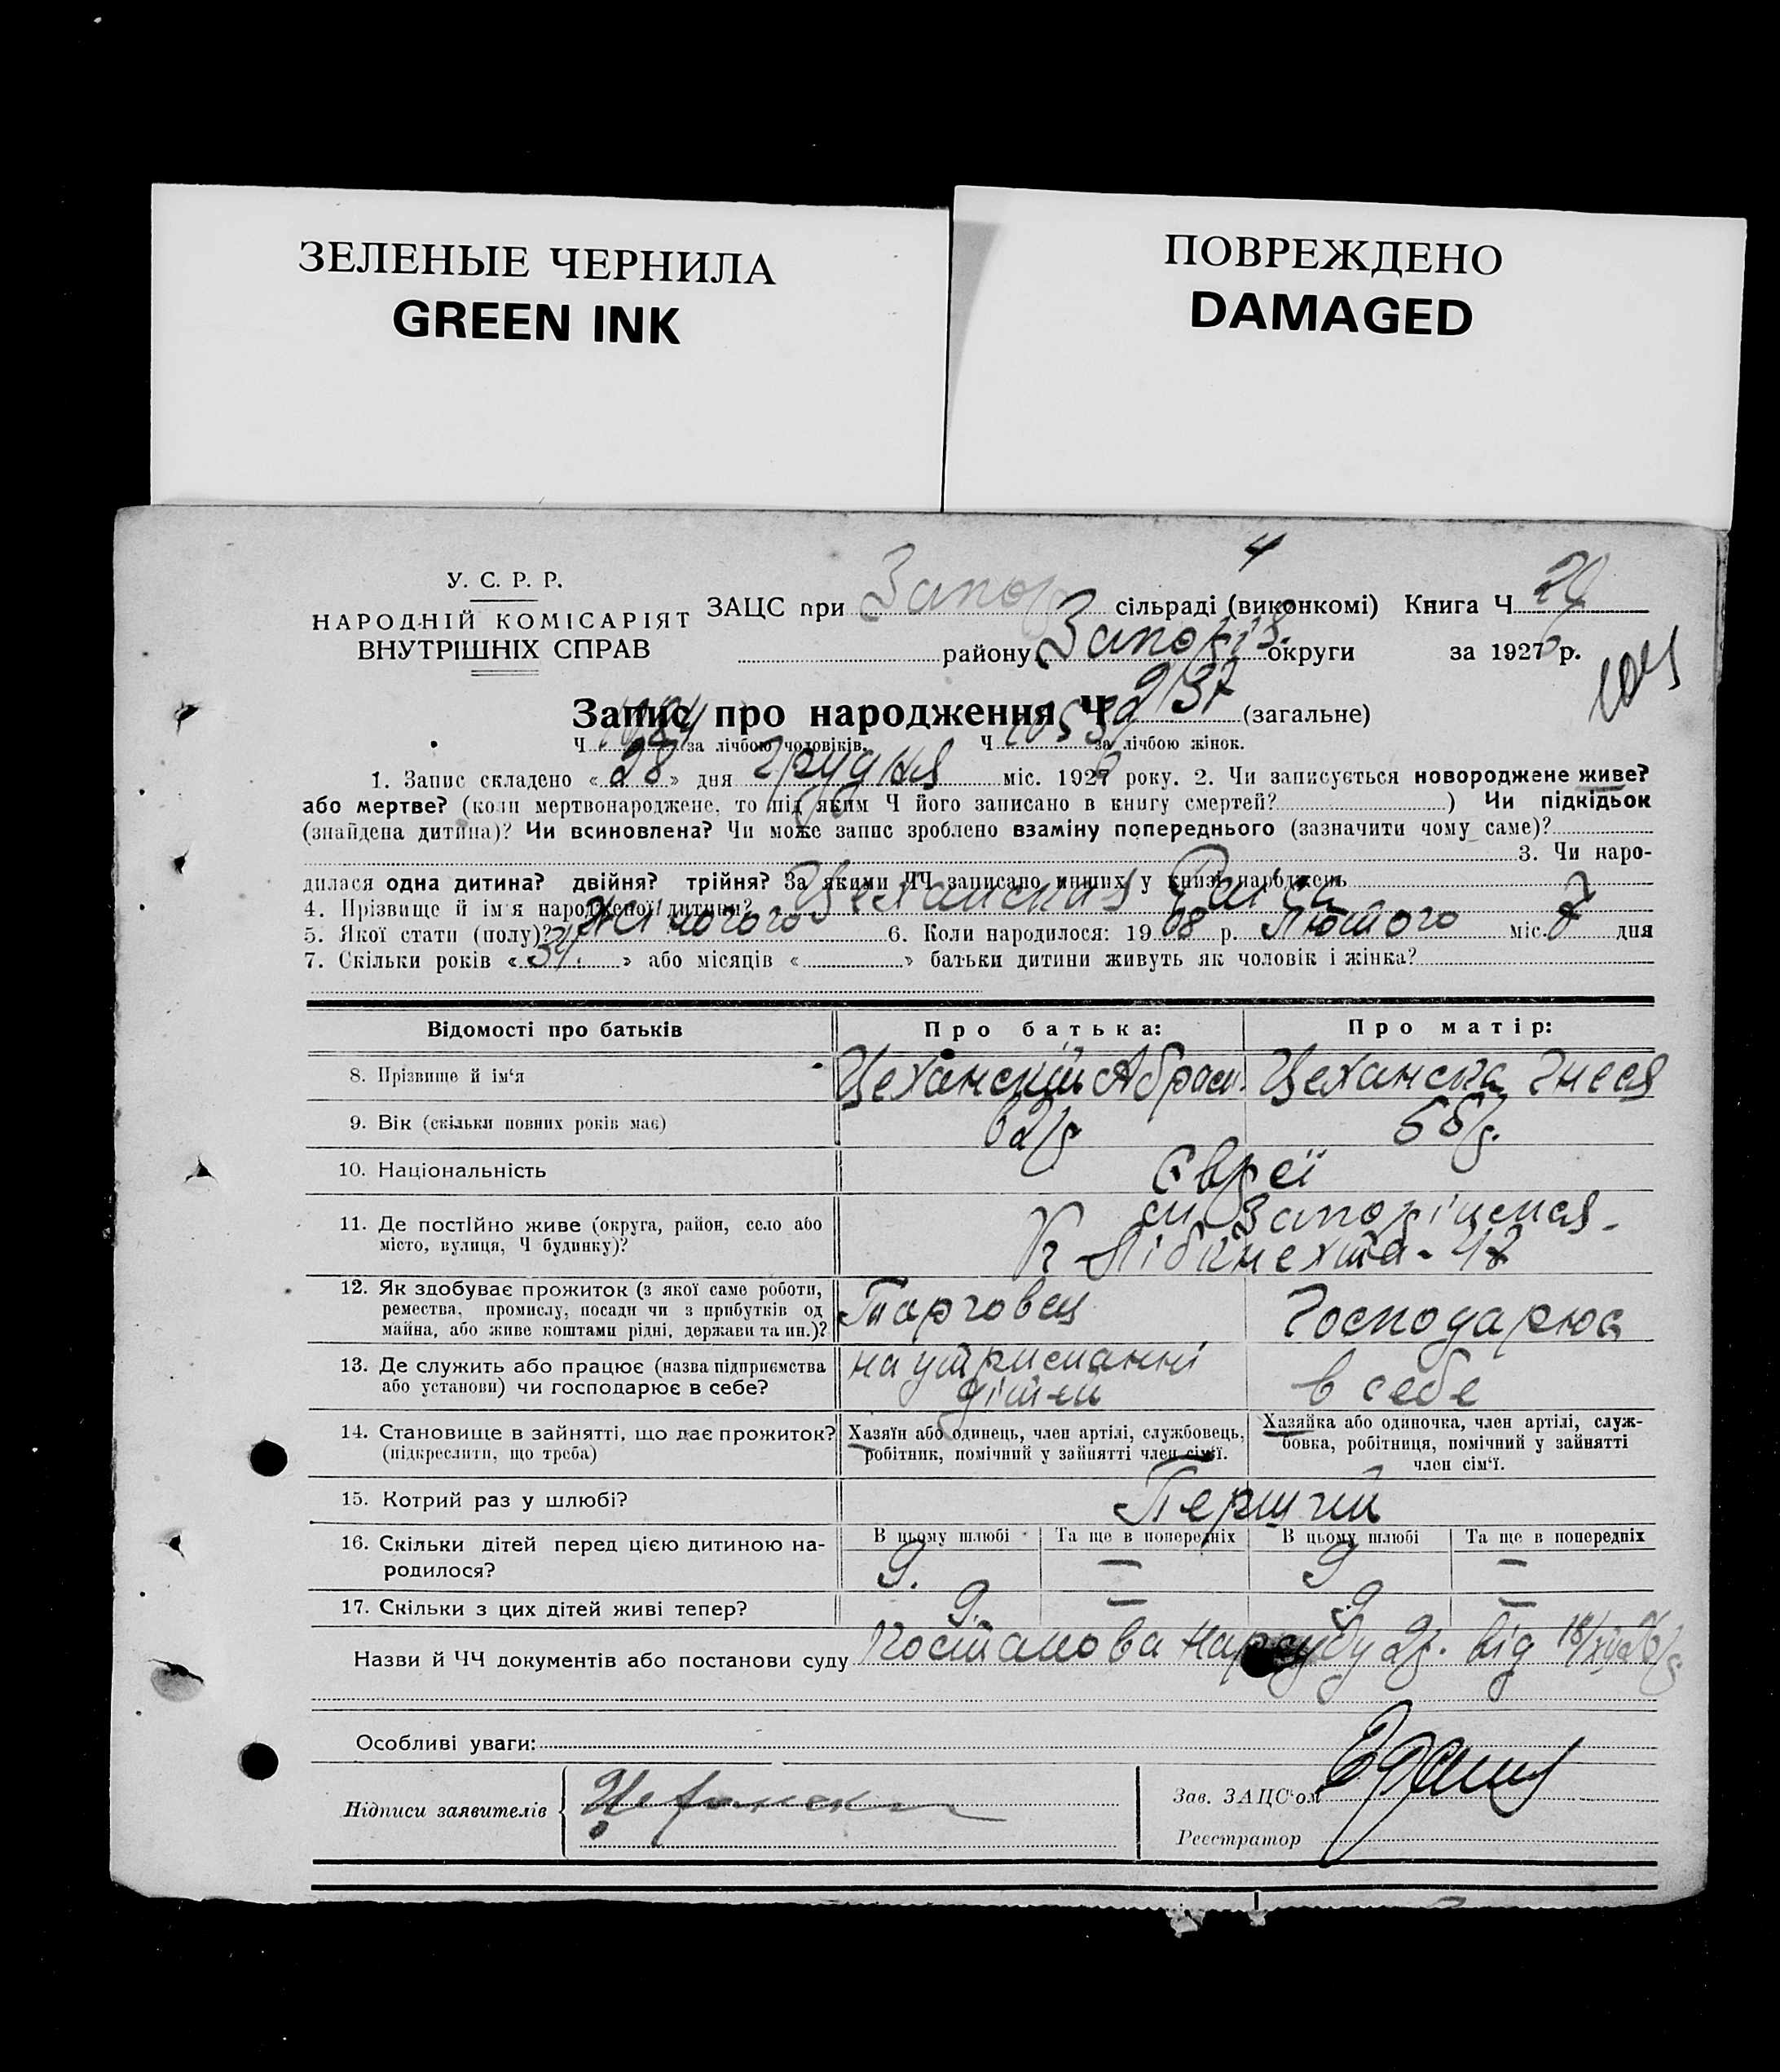 ЗЕЛЕНЫЕ ЧЕРНИЛА
GREEN INK
ПОВРЕЖДЕНО
DAMAGED
4
У. С. Р. Р.
НАРОДНІЙ КОМІСАРІЯТ
ВНУТРІШНІХ СПРАВ
ЗАЦС при Запор сільраді (виконкомі) Книга Ч
району Запоріз. округи за 1926 р.
Запис про народження Ч 2137 (загальне)
Ч за лічбою чоловіків. Ч за лічбою жінок.
1. Запис складено «28» дня Грудня міс. 1926 року. 2. Чи записується новороджене живе?
або мертве? (коли мертвонароджене, то під яким Ч його записано в книгу смертей? ) Чи підкідьок
(знайдена дитина)? Чи всиновлена? Чи може запис зроблено взаміну попереднього (зазначити чому саме)?
3. Чи наро-
дилася одна дитина? двійня? трійня? За якими ЧЧ записано инших у книзі народжень
4. Прізвище й ім'я народженої дитини? Цеханская
5. Якої стати (полу)? Жіночого 6. Коли народилося: 1908 р. Лютого міс. дня
7. Скільки років «34.» або місяців « » батьки дитини живуть як чоловік і жінка?
Відомості про батьків
Про батька:
Про матір:
8. Прізвище й ім'я Цеханский Абрам. Цеханска Гнеся
9. Вік (скільки повних років має) 62 р
10. Національність Євреї
11. Де постійно живе (округа, район, село або місто, вулиця, Ч будинку)?
К Лібкнехта - 42
12. Як здобуває прожиток (з якої саме роботи,
ремества, промислу, посади чи з прибутків од
майна, або живе коштами рідні, держави та ин.)?
Торговец
Господарює
13. Де служить або працює (назва підприємства
або установи) чи господарює в себе?
на утриманні
дітей
в себе
14. Становище в зайнятті, що дає прожиток?
(підкреслити, що треба)
Хазяїн або одинець, член артілі, службовець,
робітник, помічний у зайнятті член сім'ї.
Хазяйка або одиночка, член артілі, служ-
бовка, робітниця, помічний у зайнятті
член сім'ї.
15. Котрий раз у шлюбі? Перший
16. Скільки дітей перед цією дитиною на-
родилося?
В цьому шлюбі Та ще в попередніх В цьому шлюбі Та ще в попередніх
9. — 9 —
17. Скільки з цих дітей живі тепер? 9. — 9 —
Назви й ЧЧ документів або постанови суду Постанова Нарсуду 2 р. від 18/XII 26 р
Особливі уваги:
Підписи заявителів
Зав. ЗАЦС'ом
Реєстратор